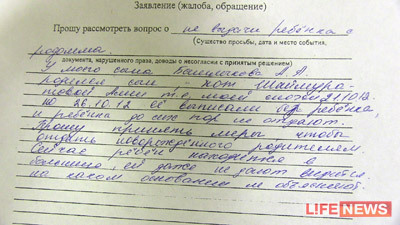 Заявление (жалоба, обращение)
Прошу рассмотреть вопрос о не выдачи ребёнка с
(Существо просьбы, дата и место события,
роддома.
документа, нарушенного права, доводы о несогласии с принятым решением)
У моего сына А.А.
родился сын от
21.10.12
но 26.10.12 её выписали без ребёнка,
и ребёнка до сих пор не отдают.
Прошу принять меры чтобы
отдать новорождённого родителям.
Сейчас ребёнок находится в
больнице её даже не дают видется.
на каком основании не объясняют.
LIFE NEWS